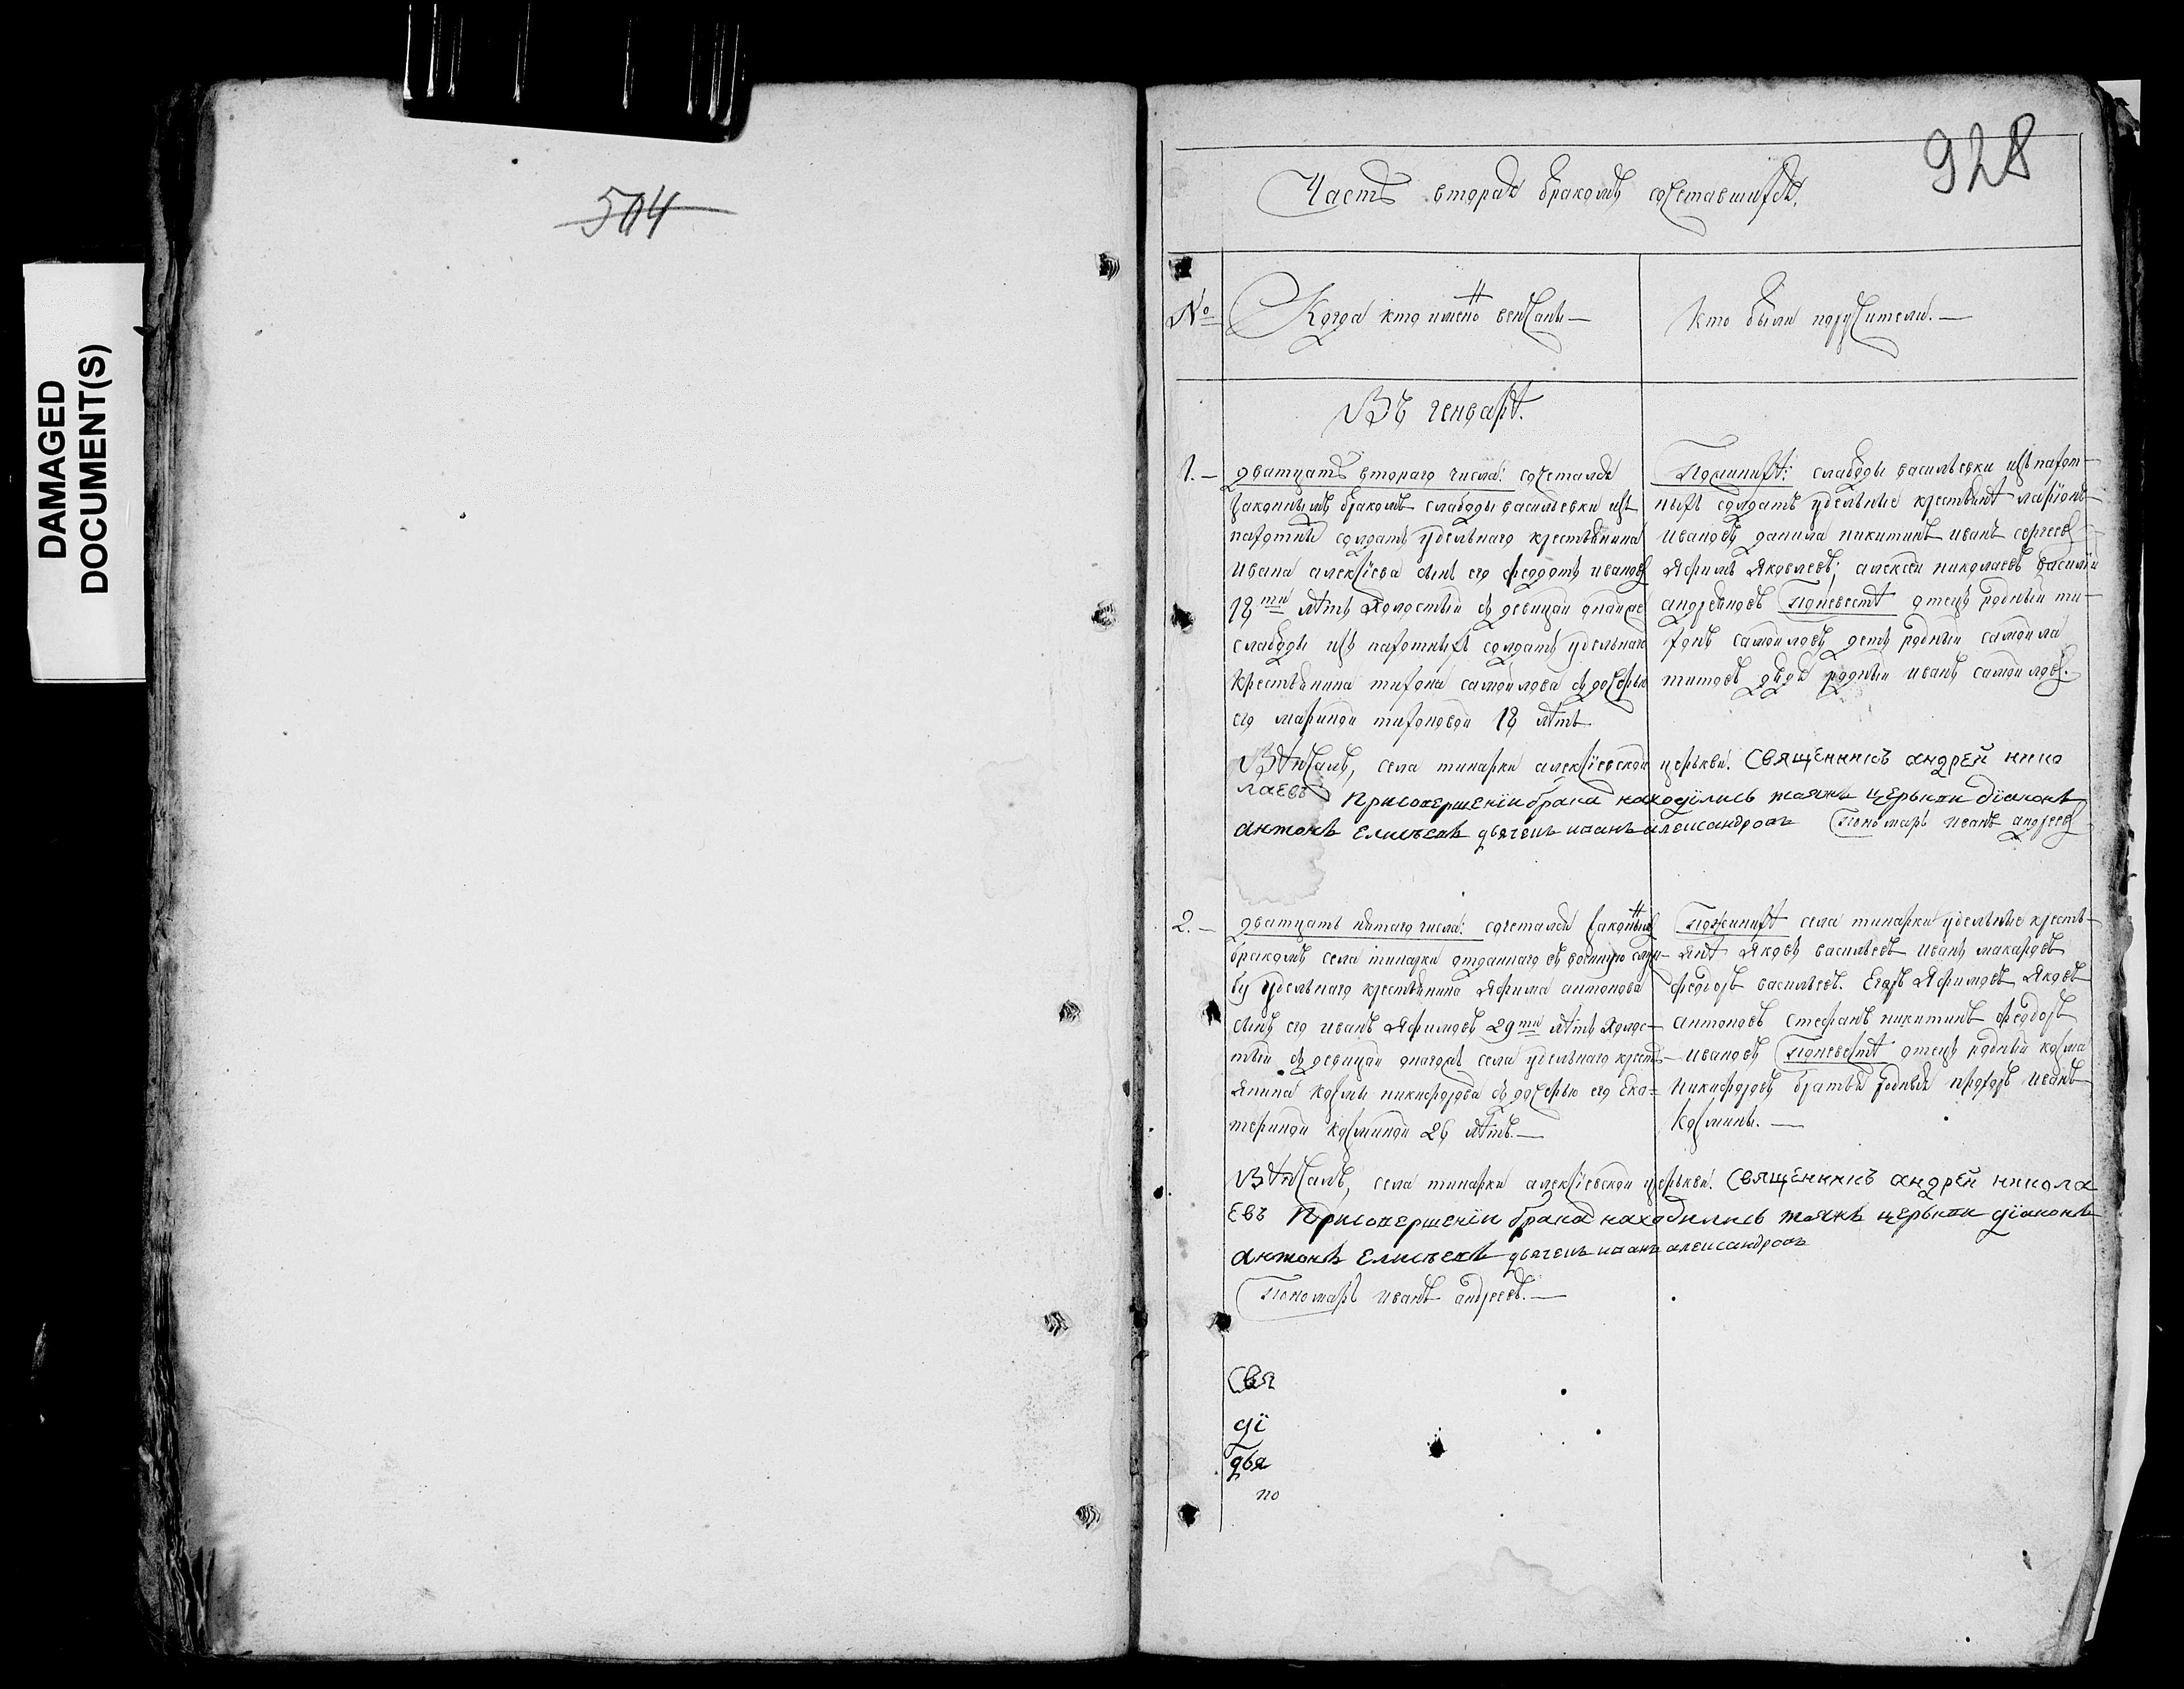 DAMAGED
DOCUMENT(S)
504
928
Часть вторая бракомъ сочетавшихся.
№
Когда кто имено венчаны
Кто были поручители.
Въ генваре.
1.
дватцать втораго числа: сочетался
законнымъ бракомъ слабоды васильевки изъ
пахотныхъ солдатъ удельнаго крестьянина
Ивана алексіева сынъ его феодотъ ивановъ
18ти летъ холостый съ девицей оной же
слабоды изъ пахотныхъ солдатъ удельнаго
крестьянина тихона самойлова съ дочерью
его мариной тихоновой 18 летъ
Пожинихе: слабоды васильевки изъ пахот-
ныхъ солдатъ удельные крестьяне ларіонъ
Ивановъ данила никитинъ иванъ сергеевъ
Яфимъ Яковлевъ; алексей николаевъ василій
андреяновъ Поневесте отецъ родный ти-
хонъ самойловъ детъ родный самойла
титовъ дядя родный иванъ самойловъ.
Венчалъ, села тинарки алексіевской церькви. Священникъ андрей нико
лаевъ Присовершеніи брака находілись тояжъ церькви діаконъ
антонъ Елисеевъ дьячекъ иванъ александровъ Пономарь иванъ андреевъ
2.
дватцать пятаго числа: сочетался законнымъ
бракомъ села тинарки отданнаго въ военную служ-
бу удельнаго крестьянина Яфима антонова
сынъ его иванъ Яфимовъ 29ти летъ холос-
тый съ девицей оного же села удельнаго крест-
янина козмы никифорова съ дочерью его Ека-
териной козминой 26 летъ.
Пожинихе села тинарки удельные кресть-
яне Яковъ васильевъ иванъ макаровъ
феодоръ васильевъ. Егоръ Яфимовъ Яковъ
антоновъ стефанъ никитинъ феодоръ
ивановъ Поневесте отецъ родный козма
никифоровъ братья родныя прохоръ иванъ
козмины.
Венчалъ, села тинарки алексіевской церькви. Священникъ андрей никола
евъ Присовершеніи брака находились тояжъ церькви діаконъ
антонъ Елисеевъ дьячекъ иванъ александровъ
Пономарь иванъ андреевъ.
Свя
ді
дья
по